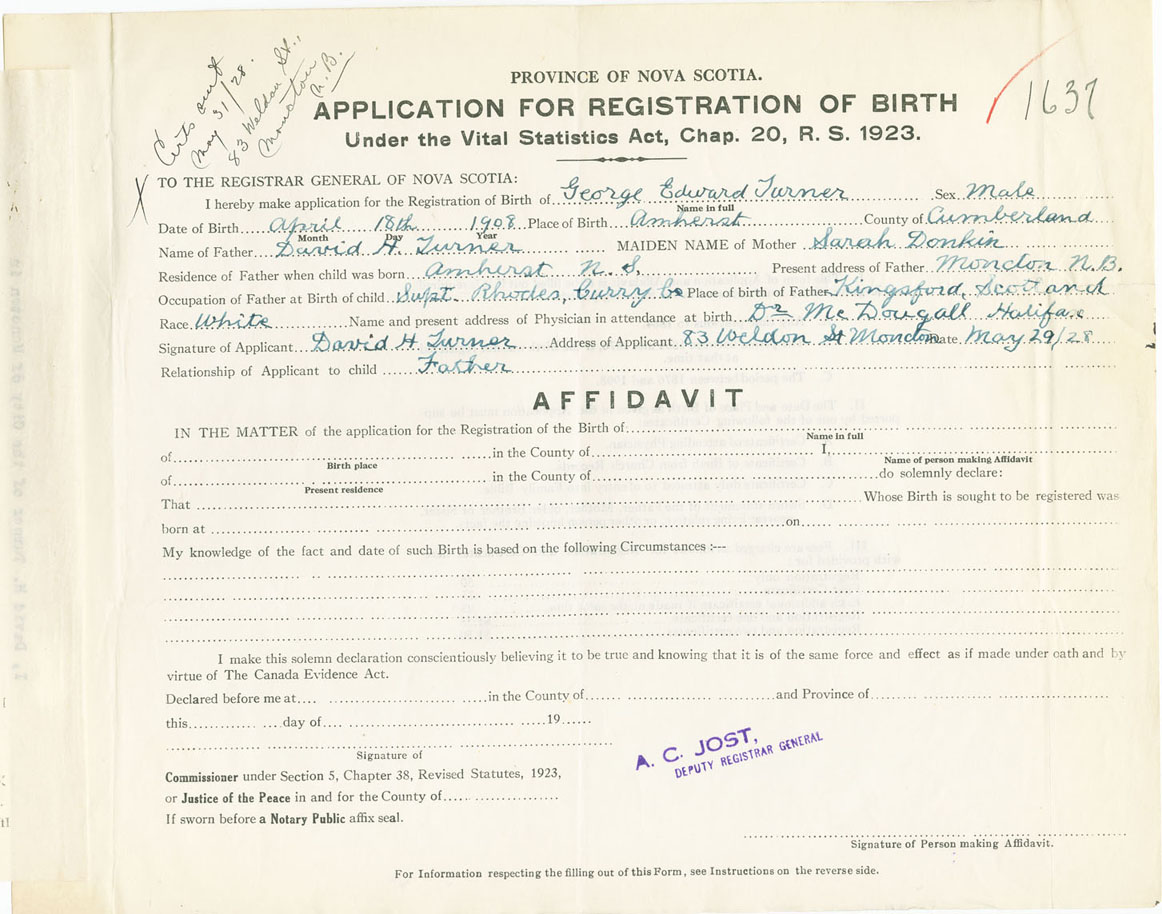 Certs out
May 31/28.
83 Weldon St.,
Moncton
N.B.
1637
PROVINCE OF NOVA SCOTIA.
APPLICATION FOR REGISTRATION OF BIRTH
Under the Vital Statistics Act, Chap. 20, R. S. 1923.
X
TO THE REGISTRAR GENERAL OF NOVA SCOTIA:
I hereby make application for the Registration of Birth of George Edward Turner Sex Male
Name in full
Date of Birth April 18th 1908 Place of Birth Amherst County of Cumberland
Month Day Year
Name of Father David H. Turner MAIDEN NAME of Mother Sarah Donkin
Residence of Father when child was born Amherst N. S. Present address of Father Moncton N.B.
Occupation of Father at Birth of child Supt. Rhodes, Curry Co Place of birth of Father Kingsford, Scotland
Race White Name and present address of Physician in attendance at birth Dr McDougall Halifax
Signature of Applicant David H Turner Address of Applicant 83 Weldon St Moncton Date May 29/28
Relationship of Applicant to child Father
AFFIDAVIT
IN THE MATTER of the application for the Registration of the Birth of:
Name in full
of in the County of I,
Birth place Name of person making Affidavit
of in the County of do solemnly declare:
Present residence
That Whose Birth is sought to be registered was
born at on
My knowledge of the fact and date of such Birth is based on the following Circumstances :---
I make this solemn declaration conscientiously believing it to be true and knowing that it is of the same force and effect as if made under oath and by
virtue of The Canada Evidence Act.
Declared before me at in the County of and Province of
this day of 19
Signature of
A. C. JOST,
DEPUTY REGISTRAR GENERAL
Commissioner under Section 5, Chapter 38, Revised Statutes, 1923,
or Justice of the Peace in and for the County of
If sworn before a Notary Public affix seal.
Signature of Person making Affidavit.
For Information respecting the filling out of this Form, see Instructions on the reverse side.